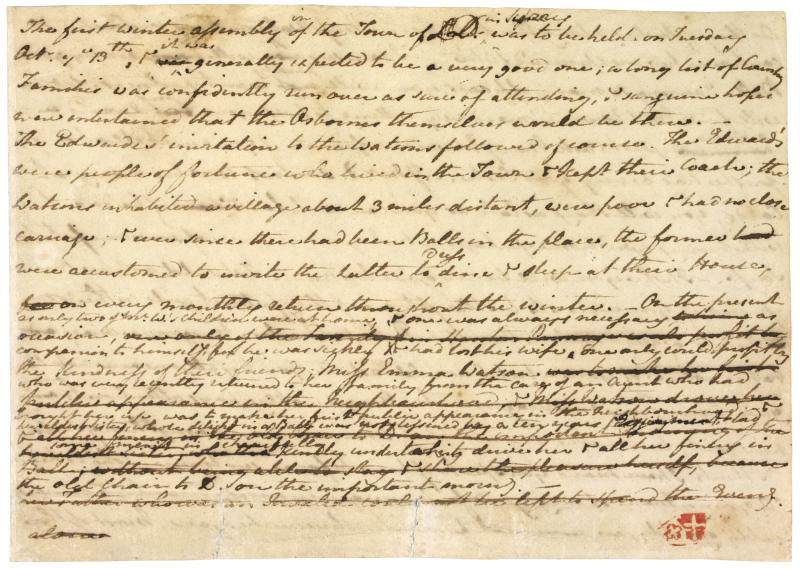 The first winter assembly in the Town of D. in Surry was to be held on Tuesday
Octr. ye 13th, & it was generally expected to be a very good one; a long list of Country
Families was confidently run over as sure of attending, & sanguine hopes
were entertained that the Osbornes themselves would be there. —
The Edwardes' invitation to the Watsons followed of course. The Edwards's
were people of fortune who lived in the Town & kept their Coach; the
Watsons inhabited a village about 3 miles distant, were poor & had no close
carriage; & ever since there had been Balls in the place, the former had
were accustomed to invite the Latter to Dress dine & sleep at their House,
for on every monthly return throughout the winter. — On the present
as only two of Mr. W's children were at home, & one was always necessary as
occasion,
companion to himself, for he was sickly & had lost his wife, one only could profit by
the kindness of their friends; Miss Emma Watson
who was very recently returned to her family from the care of an Aunt who had
brought her up, was to make her first public appearance in the Neighbourhood; &
her eldest sister, whose delight in a Ball was not lessened by a ten years Enjoyment, had
some merit in chearfully undertaking to drive her & all her finery in
Ball; without being able to stay & share the pleasure herself, because
the old chair to D. on the important morng.
her Father who was an Invalid could not be left to spend the Eveng.
alone